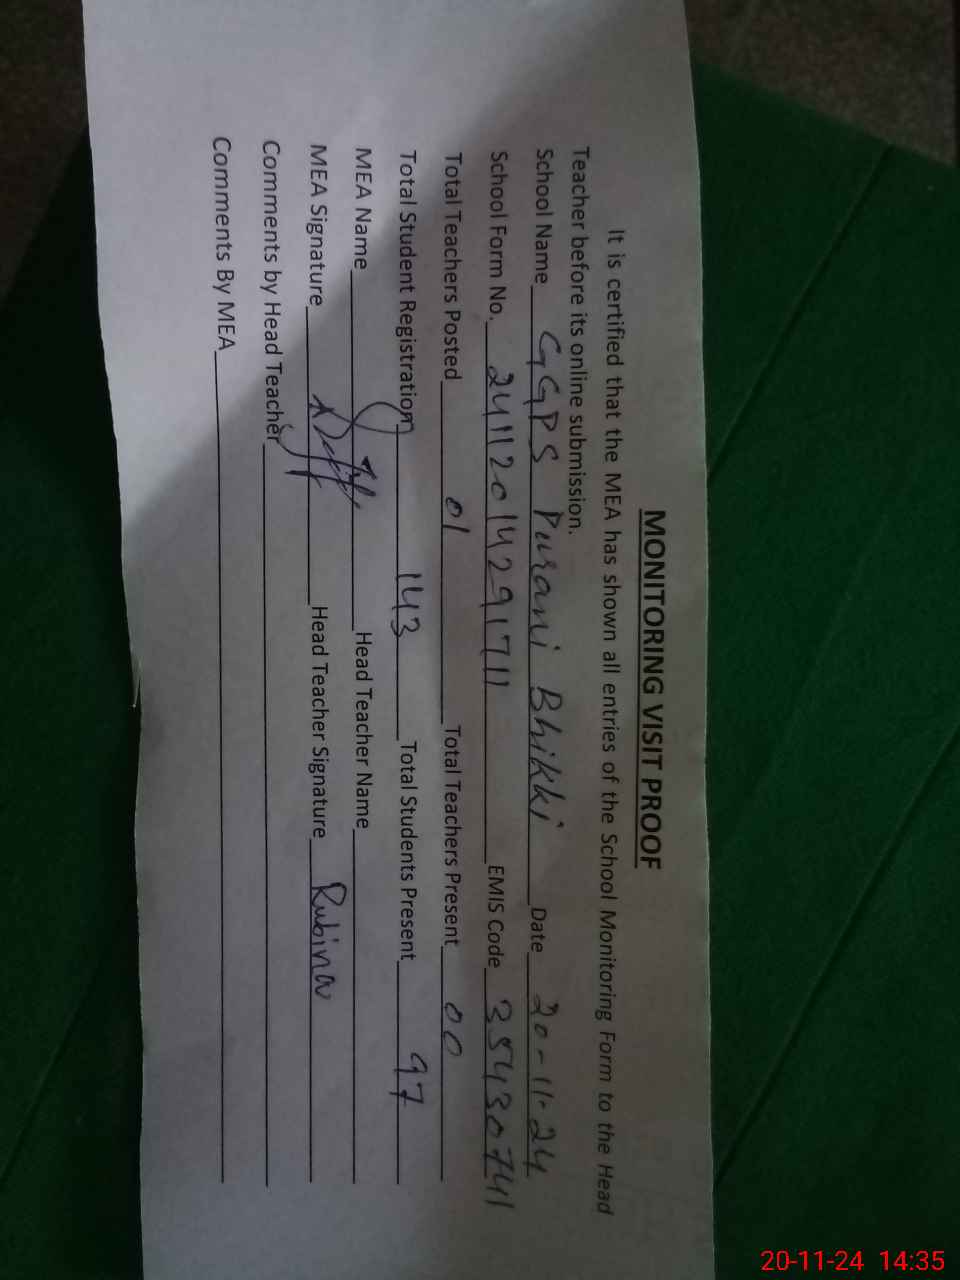 MONITORING VISIT PROOF
It is certified that the MEA has shown all entries of the School Monitoring Form to the Head
Teacher before its online submission.
School Name GGPS Purani Bhikki Date 20-11-24
School Form No. 24112014291711 EMIS Code 35430741
Total Teachers Posted 01 Total Teachers Present 00
Total Student Registration 143 Total Students Present 97
MEA Name Head Teacher Name
MEA Signature Head Teacher Signature Rubina
Comments by Head Teacher
Comments By MEA
20-11-24 14:35